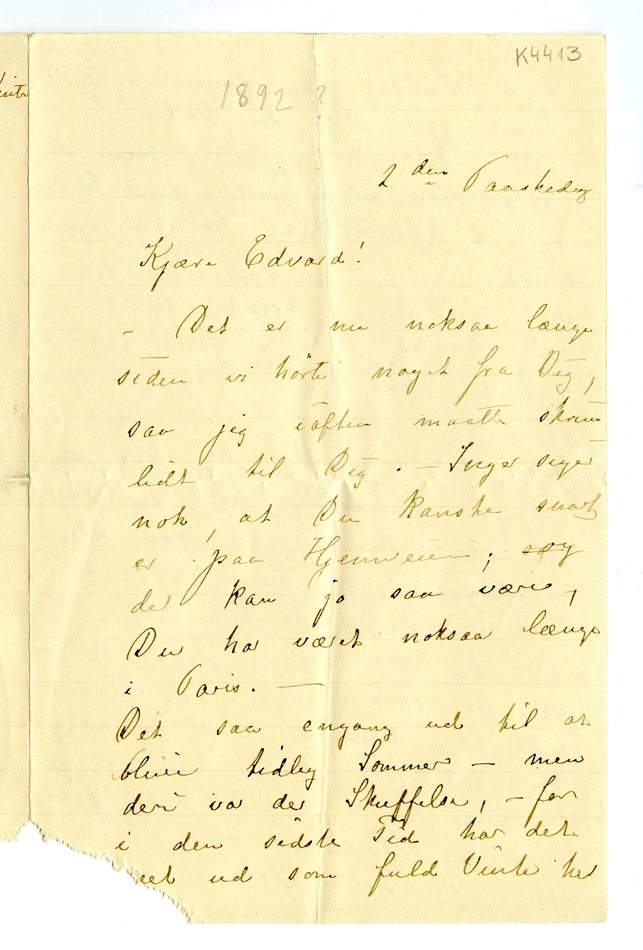 K4413
1892 ?
2 den Paaskedag
Kjære Edvard!
– Det er nu noksaa længe
siden vi hørte noget fra Dig,
saa jeg iaften maatte skrive
lidt til Dig. – Inger siger
nok, at Du kanske snart
er paa Hjemveien;
det kan jo saa være,
Du har været noksaa længe
i Paris. —
Det saa engang ud til at
blive tidlig Sommer – men
deri var der Skuffelse, – for
i den sidste Tid har det
seet ud som fuld Vinter her